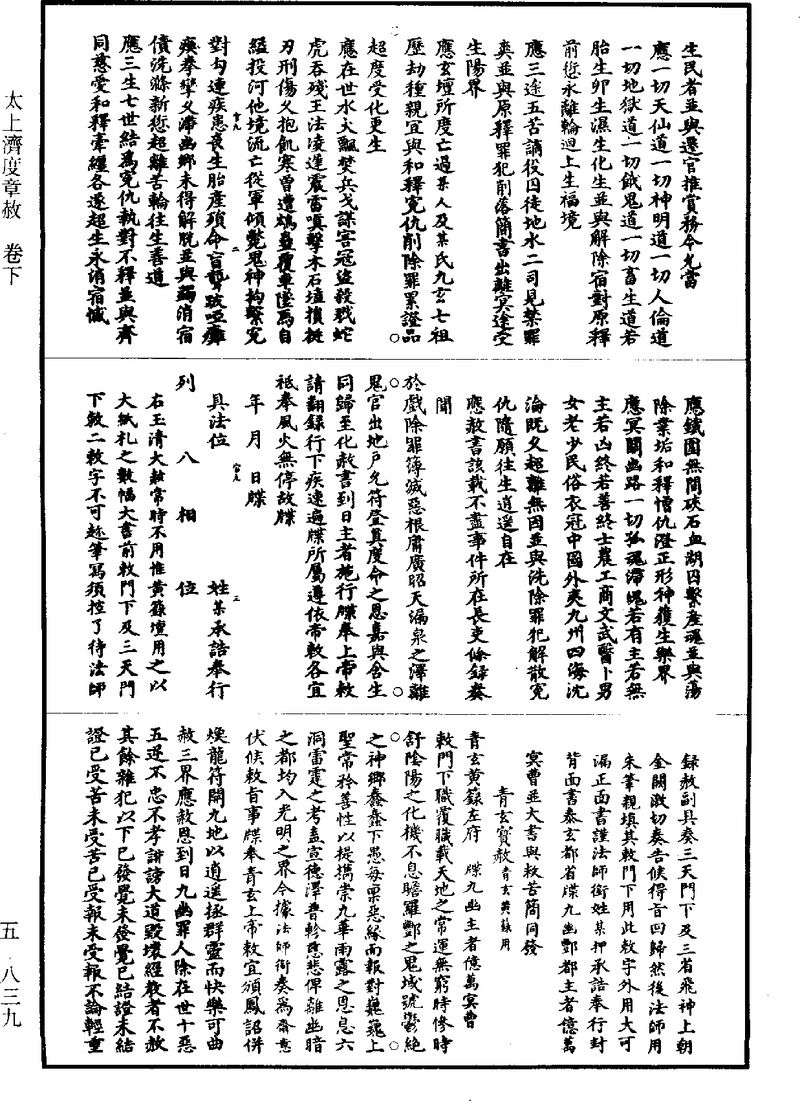 太上濟度章赦　卷下
五　八三九
生民者並與遷官推賞務令允當
應一切天仙道一切神明道一切人倫道
一切地獄道一切餓鬼道一切畜生道若
胎生卵生濕生化生並與解除宿對原釋
前愆永離輪迴上生福境
應三途五苦謫役囚徒地水二司見禁罪
爽並與原釋罪犯削落簡書出離冥途受
生陽界
應玄壇所度亡過某人及某氏九玄七祖
歷劫種親宜與和釋冤仇削除罪累證品
超度受化更生
應在世水火飄焚兵戈謀害冠盜殺戮蛇
虎吞殘王法凌遲震雷嗔擊木石墻損挺
刃刑傷又抱飢寒曾遭鴆蠱覆車墜馬自
縊投河他境流亡從軍傾斃鬼神拘繫冤
對勾連疾患喪生胎產殞命盲聾跛啞癱
瘓拳攣久滯幽鄉未得解脫並與蠲消宿
債洗滌新愆超離苦輪往生善道
應三生七世結為冤仇執對不釋並與齊
同慈愛和釋牽纏各遂超生永消宿憾
應鐵圍無間硤石血湖囚繫產魂並與蕩
除業垢和釋懵仇澄正形神獲生樂界
應冥關幽路一切孤魂滯魄若有主若無
主若凶終若善終士農工商文武醫卜男
女老少民俗衣冠中國外夷九州四海沈
淪既久超離無因並與洗除罪犯解散冤
仇隨願往生逍遥自在
應赦書該載不盡事件所在長吏條錄奏
聞
於戲除罪簿滅惡根肅廣昭天漏泉之澤離
鬼官出地戶允符登真度命之恩嘉與含生
同歸至化赦書到日主者施行牒奉上帝敕
請翻錄行下疾速遍牒所屬遵依帝敕各宜
祇奉風火無停故牒
年　月　日牒
具法位　姓某承誥奉行
列　八　相　位
右玉清大赦常時不用惟黃籙壇用之以
大紙札之數幅大書前敕門下及三天門
下敕二敕字不可趂筆寫須控了待法師
錄赦副具奏三天門下及三省飛神上朝
金闕激切奏告候得旨回歸然後法師用
朱筆親填其敕門下用此敕字外用大可
漏正面書謹法師銜姓某押承誥奉行封
背面書泰玄都省牒九幽酆都主者億萬
冥曹並大書與救苦簡同發
青玄寶赦青玄黃籙用
青玄黃籙左府　牒九幽主者億萬冥曹
敕門下職覆職載天地之常運無窮時慘時
舒陰陽之化機不息瞻羅酆之鬼域號鬱絕
之神鄉蠢蠢下愚每稟惡緣而報對巍巍上
聖常矜善性以提攜崇九華雨露之恩息六
洞雷霆之考盍宣德澤普軫慈悲俾離幽暗
之都均入光明之界今據法師銜奏為齋意
伏候敕旨事牒奉青玄上帝敕宜頒鳳詔併
燦龍符開九地以逍遥拯群靈而快樂可曲
赦三界應赦恩到日九幽罪人除在世十惡
五逆不忠不孝誹謗大道毀壞經教者不赦
其餘雜犯以下已發覺未發覺已結證未結
證已受苦未受苦已受報未受報不論輕重